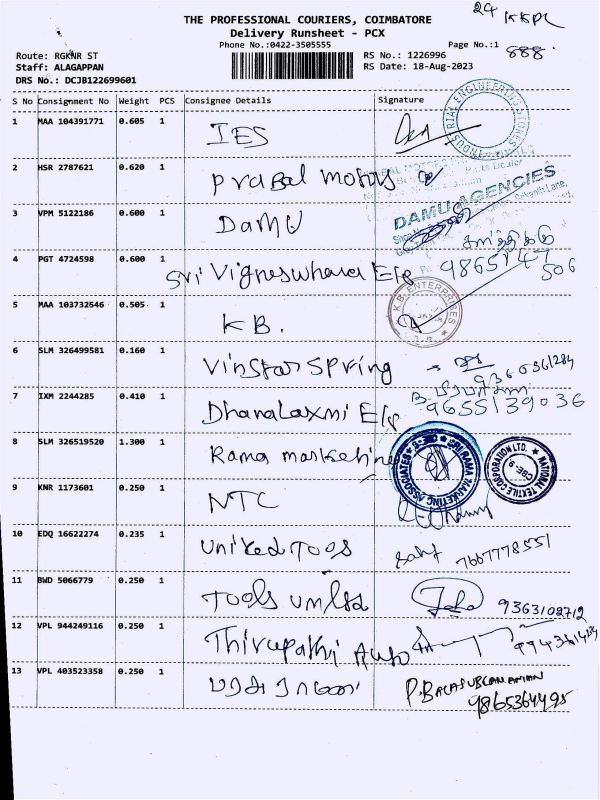 THE PROFESSIONAL COURIERS, COIMBATORE
Delivery Runsheet - PCX
Phone No.:0422-3505555
Page No.:1
24 KKPL
888
Route: RGKNR ST
RS No.: 1226996
Staff: ALAGAPPAN
RS Date: 18-Aug-2023
DRS No.: DCJB122699601
S No Consignment No Weight PCS Consignee Details Signature
1 MAA 104391771 0.605 1 IES
INDUSTRIAL ENGINEERING STORES
2 HSR 2787621 0.620 1 Prabal Motors
3 VPM 5122186 0.600 1 Damu
DAMU AGENCIES
4 PGT 4724598 0.600 1 Sri Vigneswhara E/s
5 MAA 103732546 0.505 1 K B.
K.B. ENTERPRISES
6 SLM 326499581 0.160 1 Vinstar Spring
7 IXM 2244285 0.410 1 Dhanalaxmi E/s 9655139036
8 SLM 326519520 1.300 1 Rama marketing
SRI RAMA MARKETING ASSOCIATES
NATIONAL TEXTILE CORPORATION LTD. CBE-9
9 KNR 1173601 0.250 1 NTC
10 EDQ 16622274 0.235 1 United Tools 7667778551
11 BWD 5066779 0.250 1 Tools 9363102712
12 VPL 944249116 0.250 1 Thirupathi Auto
13 VPL 403523358 0.250 1 P. BALASUBRAMANIAN
9865364495